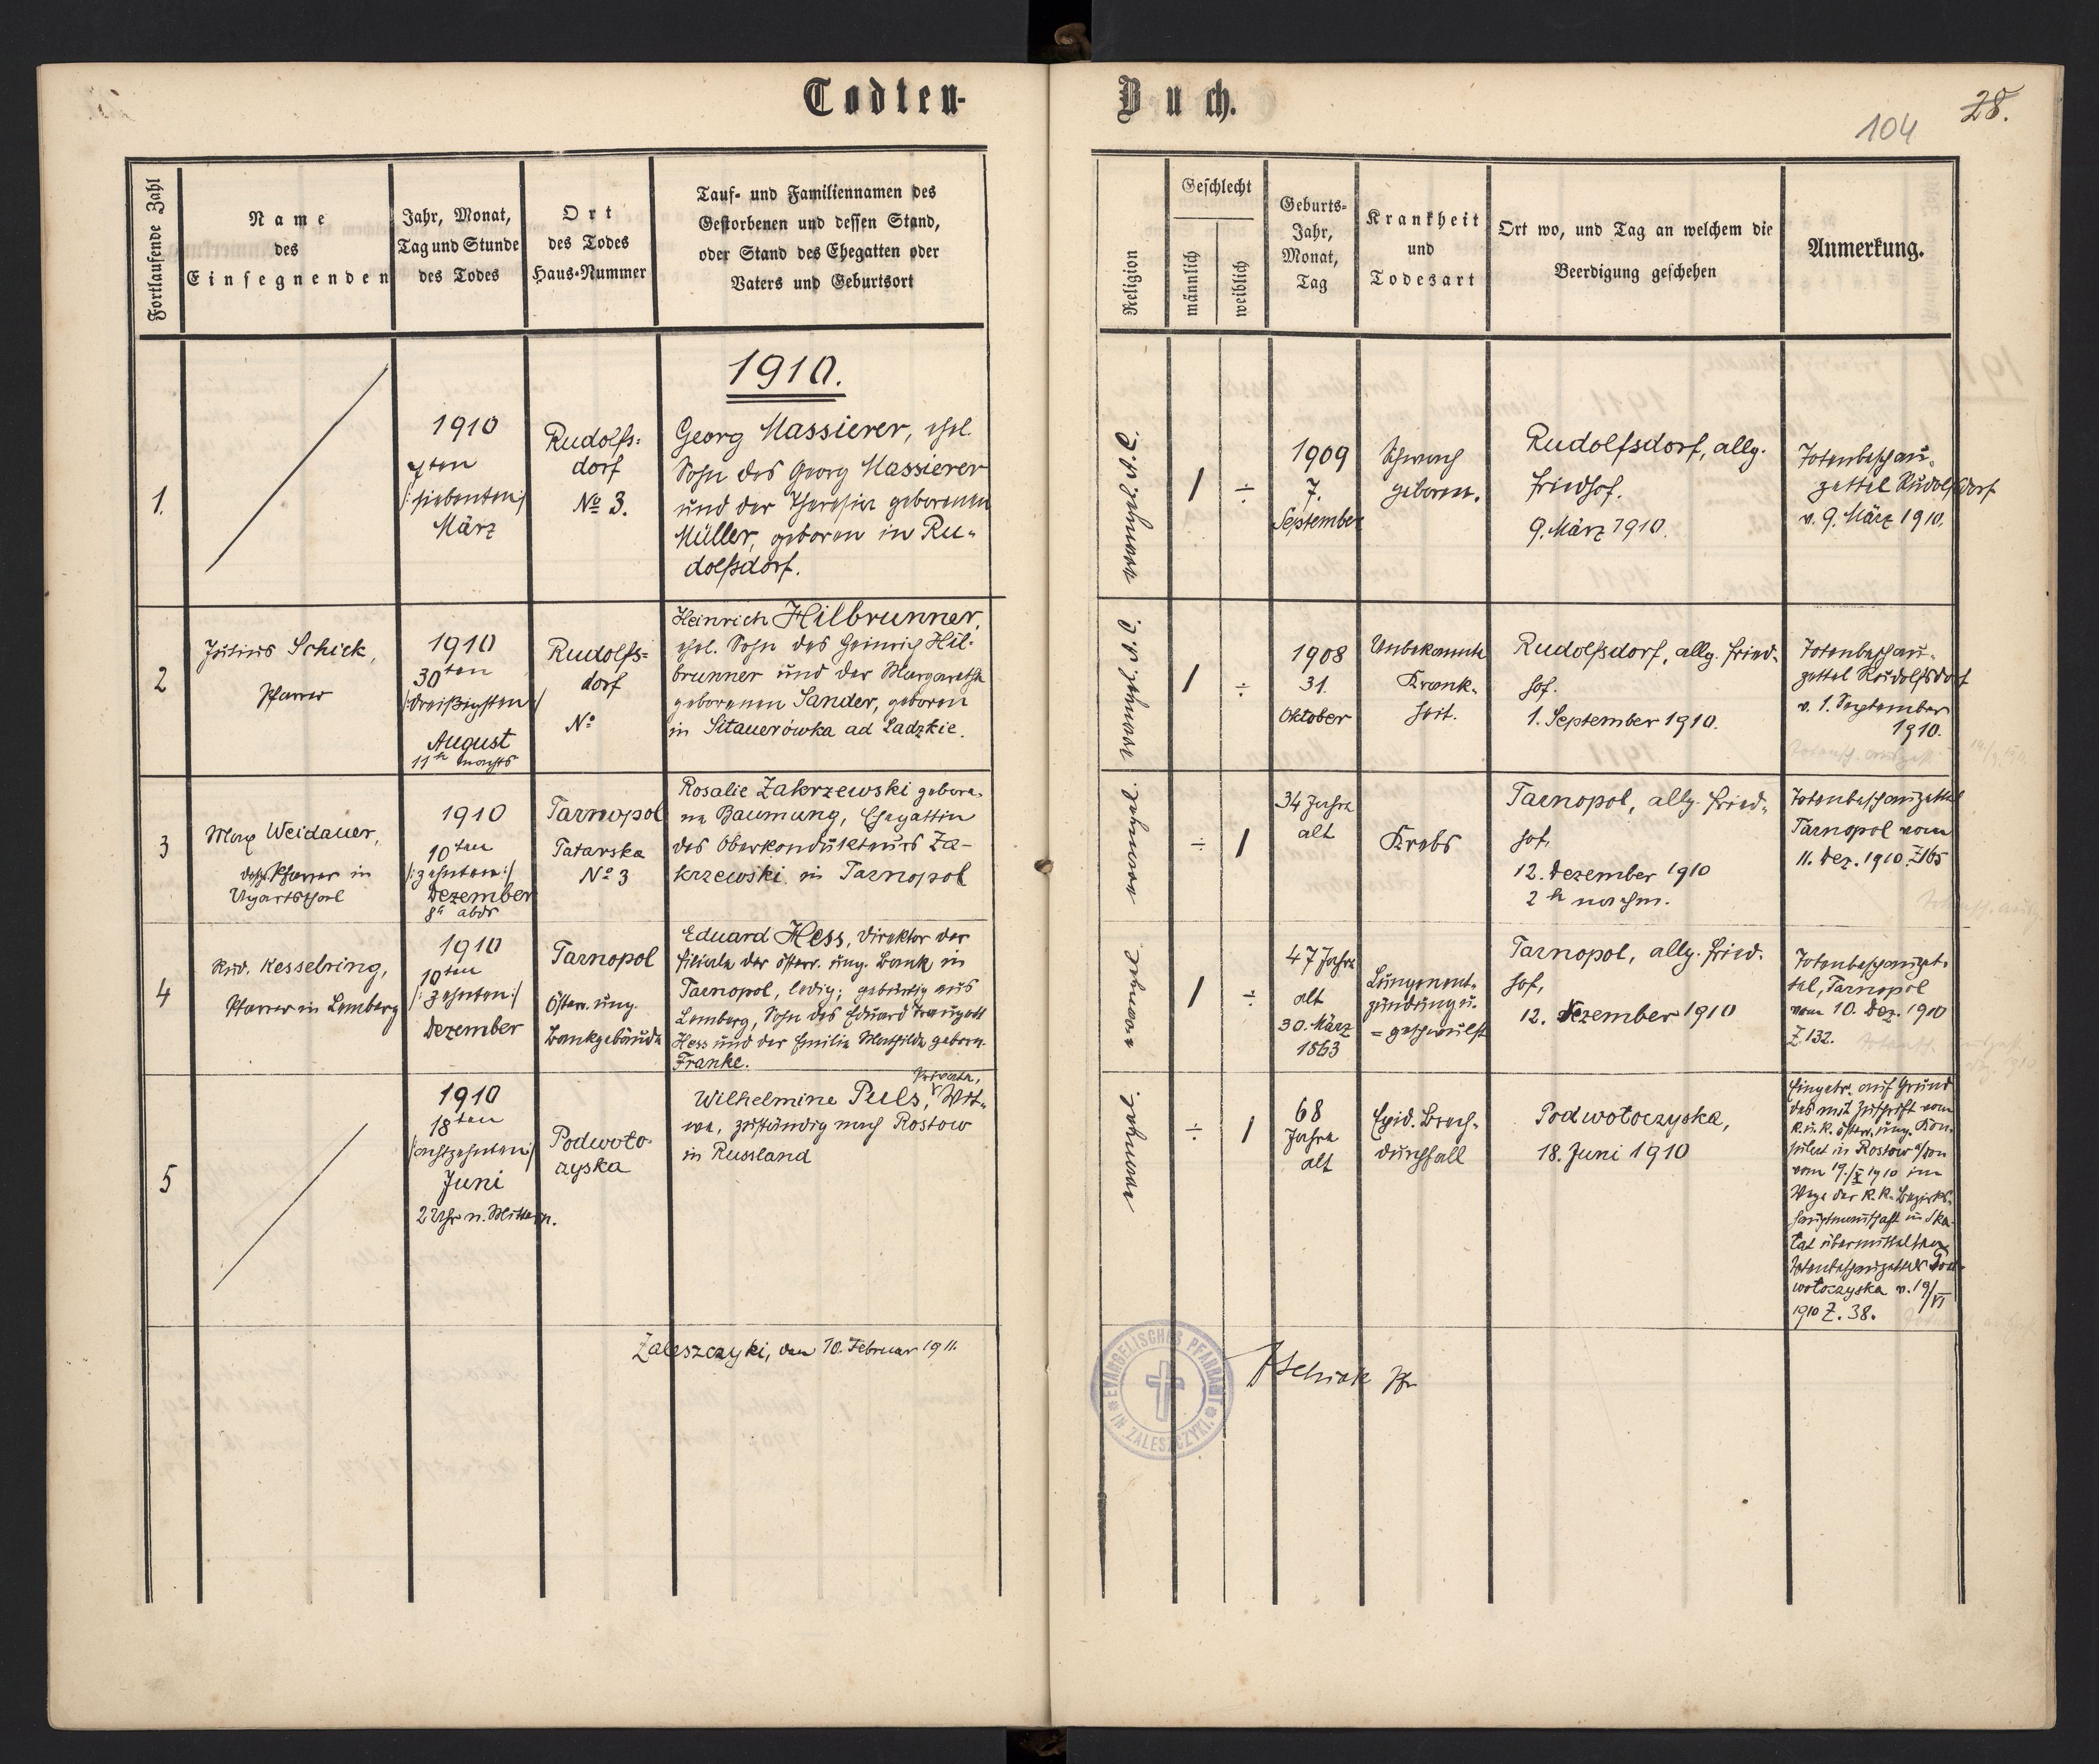 Todten-
Buch.
104
28.
Fortlaufende Zahl
Name
des
Einsegnenden
Jahr, Monat,
Tag und Stunde
des Todes
Ort
des Todes
Haus-Nummer
Tauf- und Familiennamen des
Gestorbenen und dessen Stand,
oder Stand des Ehegatten oder
Vaters und Geburtsort
Religion
Geschlecht
männlich
weiblich
Geburts-
Jahr,
Monat,
Tag
Krankheit
und
Todesart
Ort wo, und Tag an welchem die
Beerdigung geschehen
Anmerkung.
1910.
1.
1910
7ten
/:siebenten:/
März
Rudolfs=
dorf
No 3.
Georg Massierer, ehel.
Sohn des Georg Massierer
und der Theresia geborenen
Müller, geboren in Ru-
dolfsdorf.
evang.
1
÷
1909
7.
September
Schwach
geboren.
Rudolfsdorf, allg.
Friedhof.
9. März 1910.
Totenbeschau-
zettel Rudolfsdorf
v. 9. März 1910.
2
Julius Schick,
Pfarrer
1910
30ten
/dreißigsten/
August
11h nachts
Rudolfs=
dorf
No
Heinrich Hilbrunner,
ehel. Sohn des Heinrich Hil-
brunner und der Margaretha
geborenen Sander, geboren
in Sitauerówka ad Ladzkie.
evang.
1
÷
1908
31.
Oktober
Unbekannte
Krank-
heit.
Rudolfsdorf, allg. Fried-
hof.
1. September 1910.
Totenbeschau-
zettel Rudolfsdorf
v. 1. September
1910.
3
Max Weidauer,
Pfarrer in
Ugartsthal
1910
10ten
/:zehnten:/
Dezember
8h abds
Tarnopol
Tatarska
No 3
Rosalie Zakrzewski gebore-
ne Baumung, Ehegattin
des Oberkondukteurs Za-
krzewski in Tarnopol
evang.
÷
1
34 Jahre
alt
Krebs
Tarnopol, allg. Fried-
hof,
12. Dezember 1910
2h nachm.
Totenbeschauzettel
Tarnopol vom
11. Dez. 1910 Z165
4
Rud. Kesselring,
Pfarrer in Lemberg
1910
10ten
/:zehnten:/
Dezember
Tarnopol
Österr. ung.
Bankgebäude
Eduard Hess, Direktor der
Filiale der österr. ung. Bank in
Tarnopol, ledig; gebürtig aus
Lemberg, Sohn des Eduard Traugott
Hess und der Emilie Mathilde gebore.
Franke.
evang.
1
÷
47 Jahre
alt
30. März
1863
Lungenent-
zündung u.
= geschwulst
Tarnopol, allg. Fried-
hof,
12. Dezember 1910
Totenbeschauzet-
tel, Tarnopol
vom 10. Dez. 1910
Z. 132.
5
1910
18ten
/achtzehnten/
Juni
2 Uhr n. Mittern.
Podwoło-
czyska
Private,
Wilhelmine Puls, Wit-
we, zuständig nach Rostow
in Russland
evang.
÷
1
68
Jahre
alt
Epid. Brech-
durchfall
Podwołoczyska,
18. Juni 1910
Eingetr. auf Grund
des mit Zuschrift vom
k. u. k. österr. ung. Kon-
sulat in Rostow a/Don
vom 19./X 1910 im
Wege der k. k. Bezirks-
hauptmannschaft in Ska-
łat übermittelten
Totenbeschauzettels Pod-
wołoczyska v. 19/VI
1910 Z. 38.
Zaleszczyki, den 10. Februar 1911.
EVANGELISCHES PFARRAMT
IN ZALESZCZYKI.
JSchick Pfr